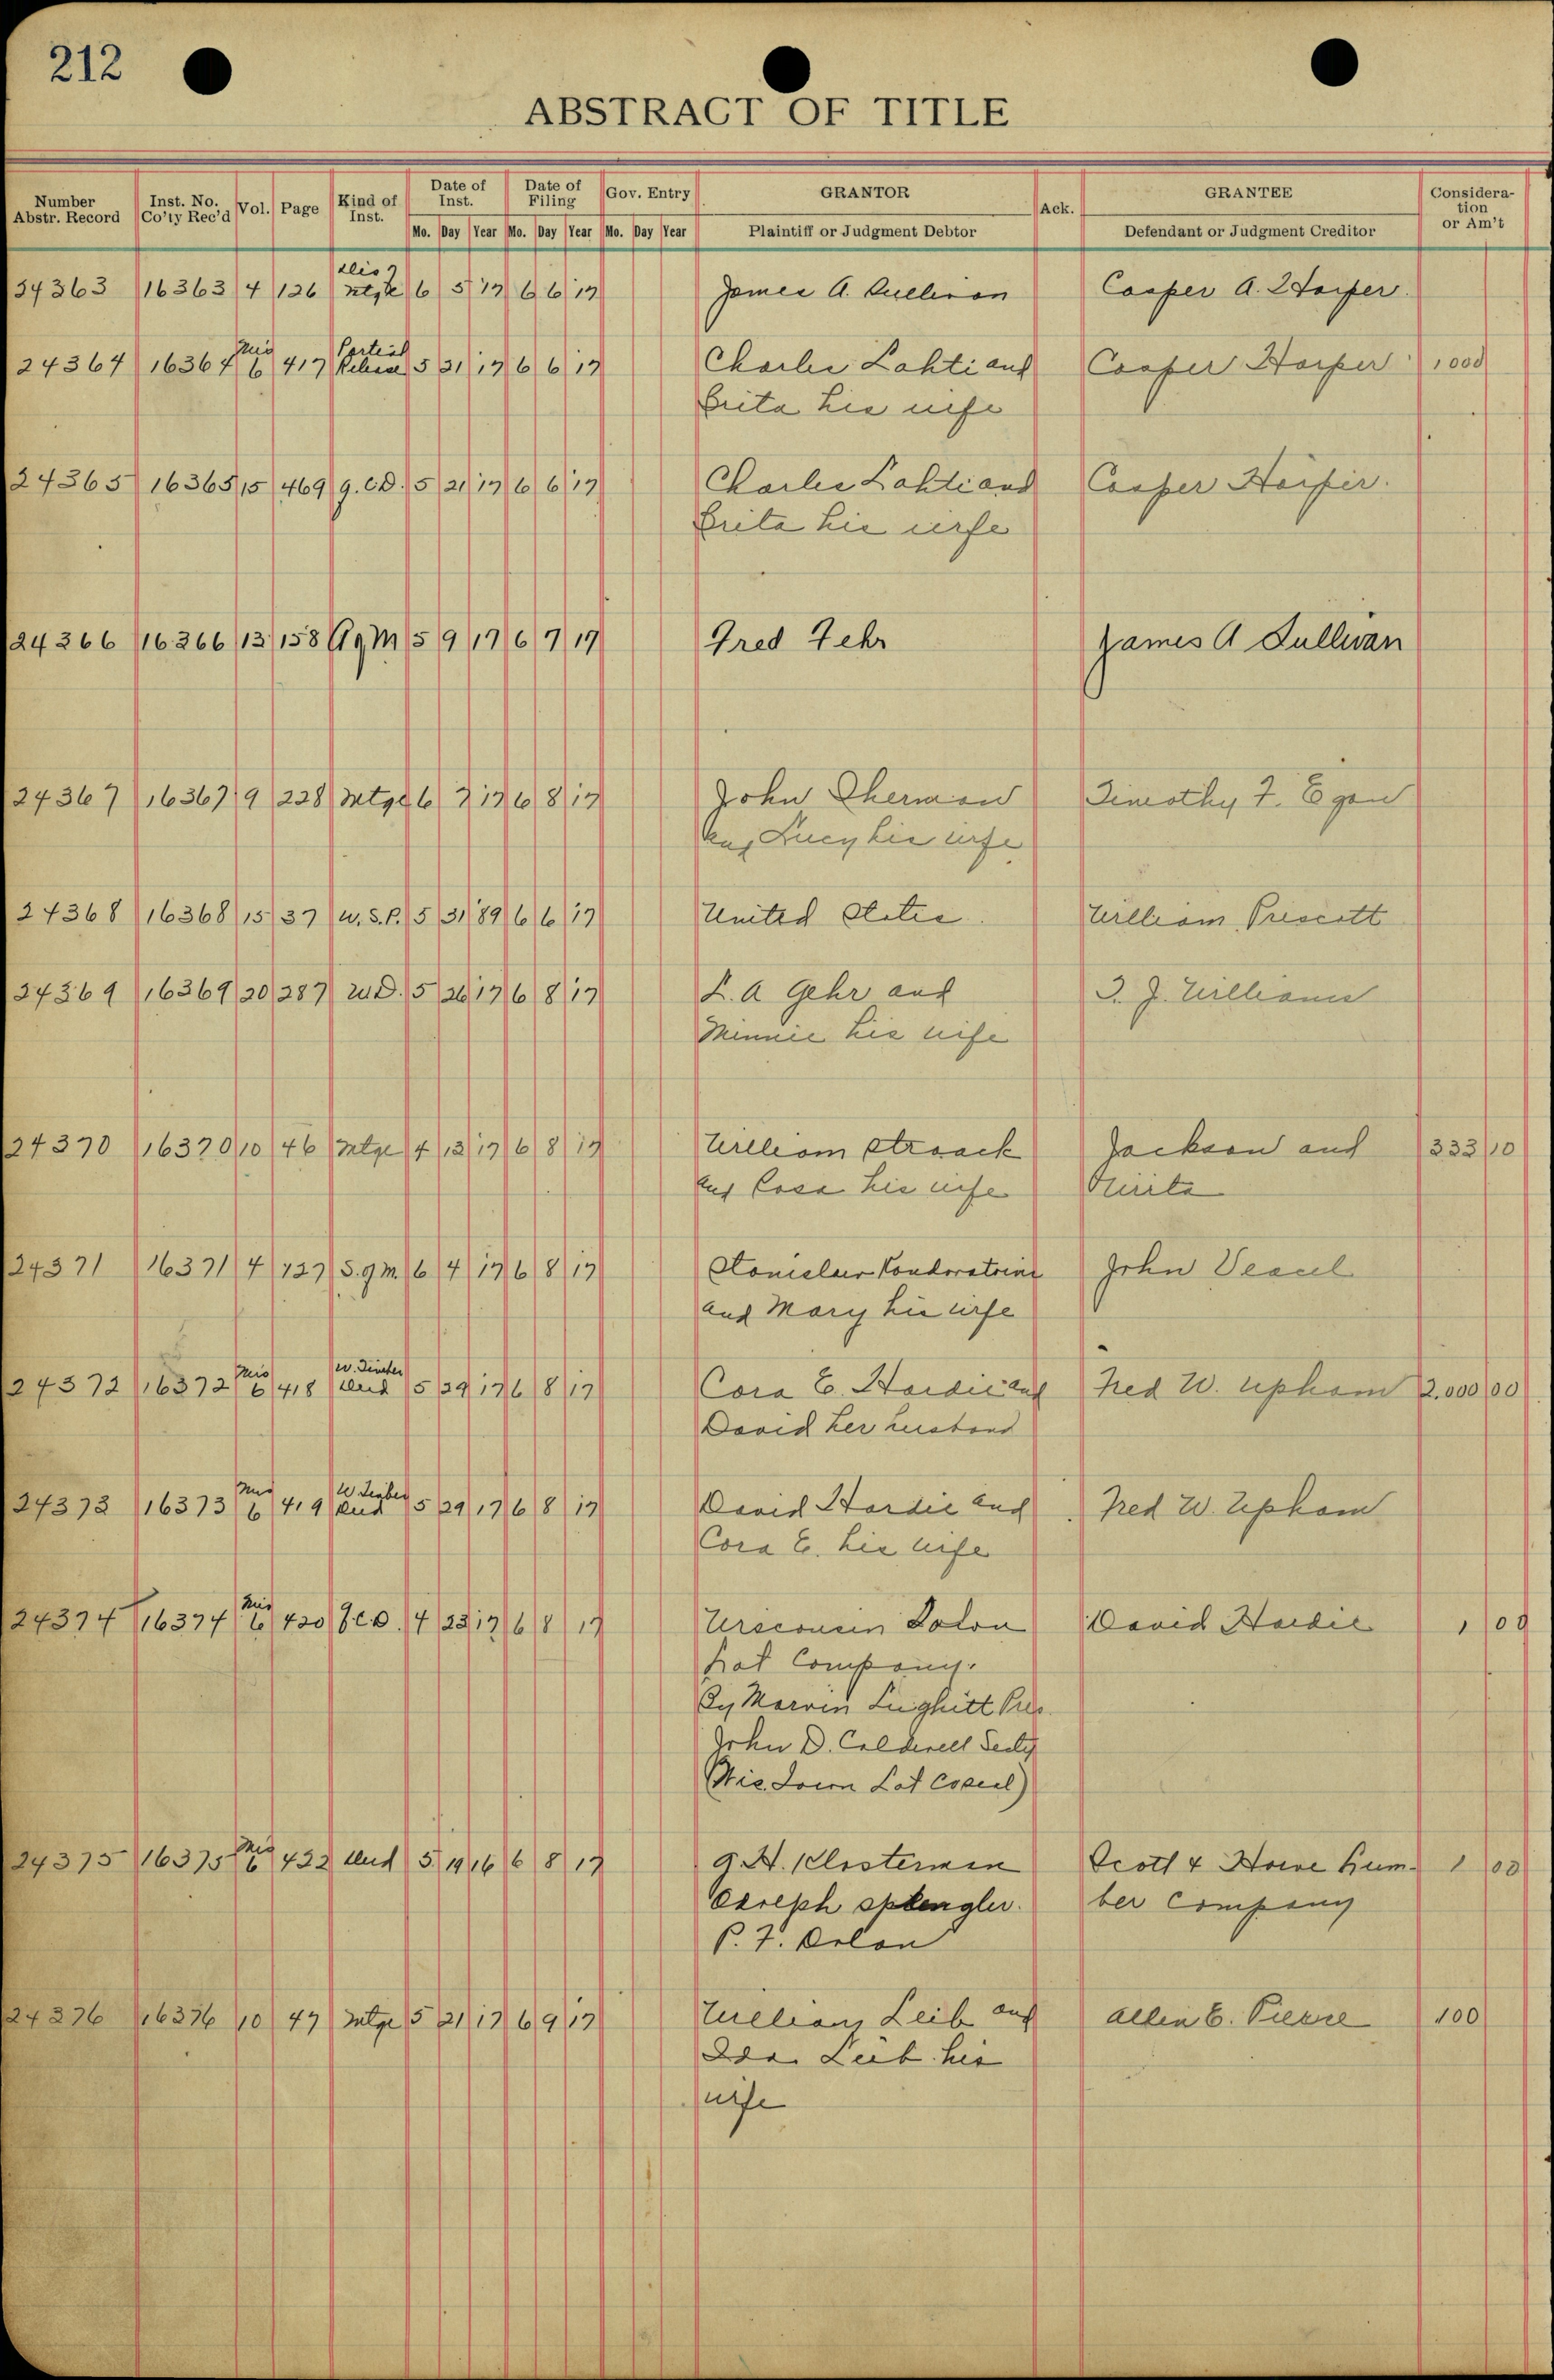 212
ABSTRACT OF TITLE
Number Abstr. Record Inst. No. Co'ty Rec'd Vol. Page Kind of Inst. Date of Inst. Date of Filing Gov. Entry GRANTOR Ack. GRANTEE Consideration or Am't
Mo. Day Year Mo. Day Year Mo. Day Year Plaintiff or Judgment Debtor Defendant or Judgment Creditor
24363 16363 4 126 Dis Mtge 6 5 17 6 6 17 James A. Sullivan Casper A. Harper.
24364 16364 Mis 6 417 Partial Release 5 21 17 6 6 17 Charles Lahti and Casper Harper 1 000
Brita his wife
24365 16365 15 469 Q.C.D. 5 21 17 6 6 17 Charles Lahti and Casper Harper.
Brita his wife
24366 16366 13 158 AgM 5 9 17 6 7 17 Fred Fehr James A Sullivan
24367 16367 9 228 Mtge 6 7 17 6 8 17 John Sherman Timothy F. Egan
and Lucy his wife
24368 16368 15 37 U.S.P. 5 31 89 6 6 17 United States. William Prescott
24369 16369 20 287 W.D. 5 26 17 6 8 17 L. A Gehr and J. Williams
Minnie his wife
24370 16370 10 46 Mtge 4 13 17 6 8 17 William Straack Jackson and 333 10
and Rosa his wife
24371 16371 4 127 S.g.M. 6 4 17 6 8 17 Stanislaw John
and Mary his wife
24372 16372 Mis 6 418 W. Timber Deed 5 29 17 6 8 17 Cora E. Hardie and Fred W. Upham 2,000 00
David her husband
24373 16373 Mis 6 419 W Timber Deed 5 29 17 6 8 17 David Hardie and Fred W. Upham
Cora E. his wife
24374 16374 Mis 6 420 Q.C.D. 4 23 17 6 8 17 Wisconsin Town David Hardie 1 00
Lot Company.
By Marvin Hughitt Pres.
John D. Caldwell Secty
(Wis. Town Lot Co seal)
24375 16375 Mis 6 422 Deed 5 19 16 6 8 17 G. H. Klosterman Scott & Howe Lum- 1 00
Joseph Splengler. ber Company
P. F. Dolan
24376 16376 10 47 Mtge 5 21 17 6 9 17 William Leib and Allen E. Pierre 100
Ida Leib his
wife